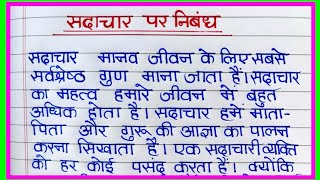 सदाचार पर निबंध
सदाचार मानव जीवन के लिए सबसे
सर्वश्रेष्ठ गुण माना जाता हैं। सदाचार
का महत्व हमारे जीवन में बहुत
अधिक होता है। सदाचार हमें माता-
पिता और गुरू की आज्ञा का पालन
करना सिखाता है। एक सदाचारी व्यक्ति
को हर कोई पसंद करता हैं। क्योंकि